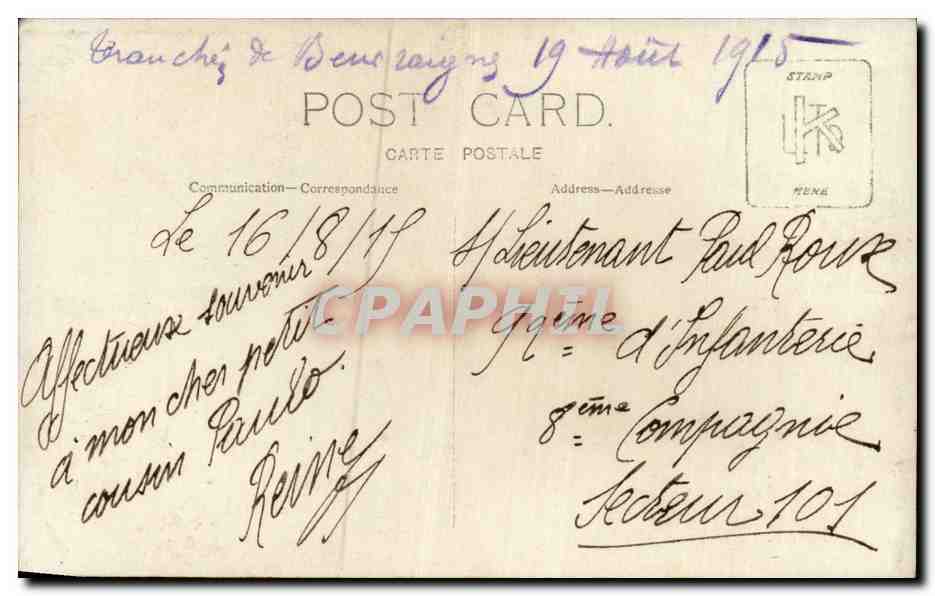 Tranchée de Beuvraignes 19 Août 1915
POST CARD.
CARTE POSTALE
STAMP
HERE
Communication—Correspondance
Address—Addresse
Le 16/8/15
Affectueux souvenir
à mon cher petit
cousin Paulo.
Reine
S/Lieutenant Paul Roux
92ème d'Infanterie
8ème Compagnie
Secteur 101
CPAPHIL.COM